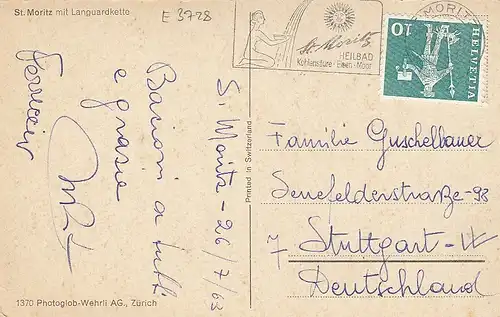 St. Moritz mit Languardkette
E 3728
St. Moritz
HEILBAD
Kohlensäure · Eisen · Moor
MORITZ
10
HELVETIA
S. Moritz - 26/7/63
Bacioni a tutti
e grazie
Familie Guschelbauer
Senefelderstraße - 98
7 Stuttgart - W
Deutschland
Printed in Switzerland
1370 Photoglob-Wehrli AG., Zürich